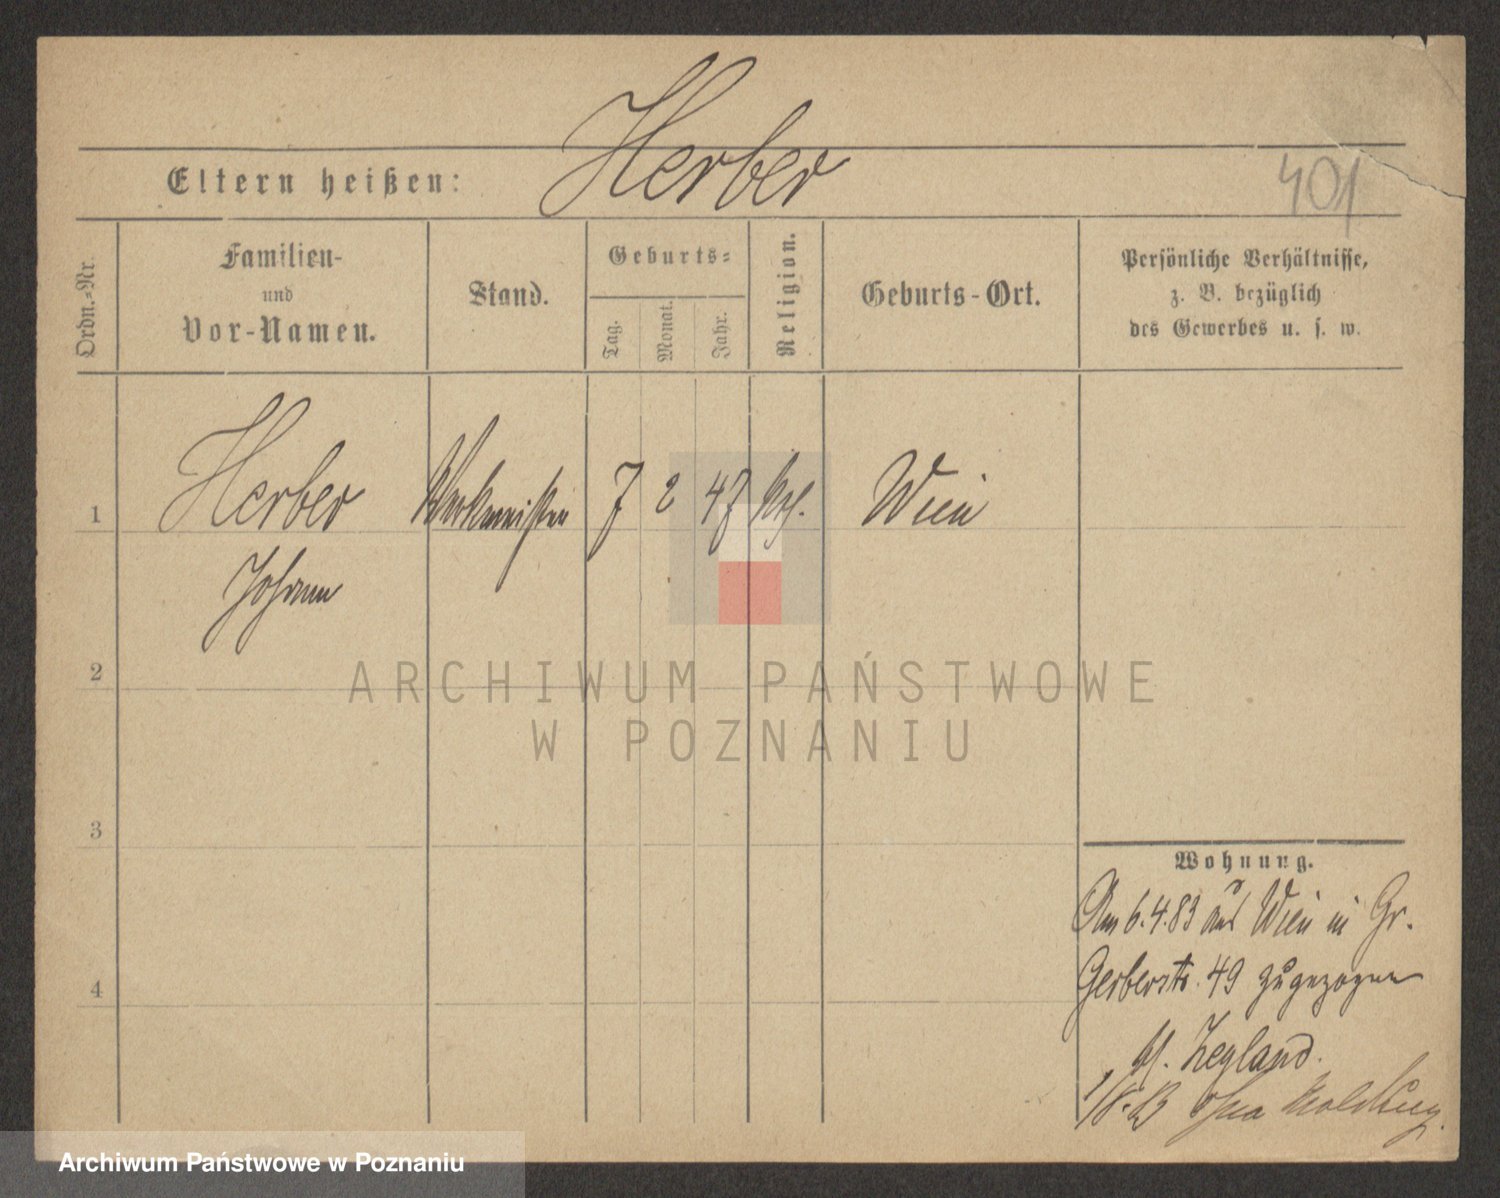 Herber
Eltern heißen:
401
Ordn.-Nr.
Familien-
und
Vor-Namen.
Stand.
Geburts-
Tag.
Monat.
Jahr.
Religion.
Geburts-Ort.
Persönliche Verhältnisse,
z. B. bezüglich
des Gewerbes u. s. w.
1
Herber
Johann
Werkmeister
7
2
47
Wien
2
ARCHIWUM PAŃSTWOWE
W POZNANIU
3
4
Wohnung.
Am 6.4.83 aus Wien in Gr.
Gerberstr. 49 zugezogen
Zeyland.
ohne Meldung.
Archiwum Państwowe w Poznaniu